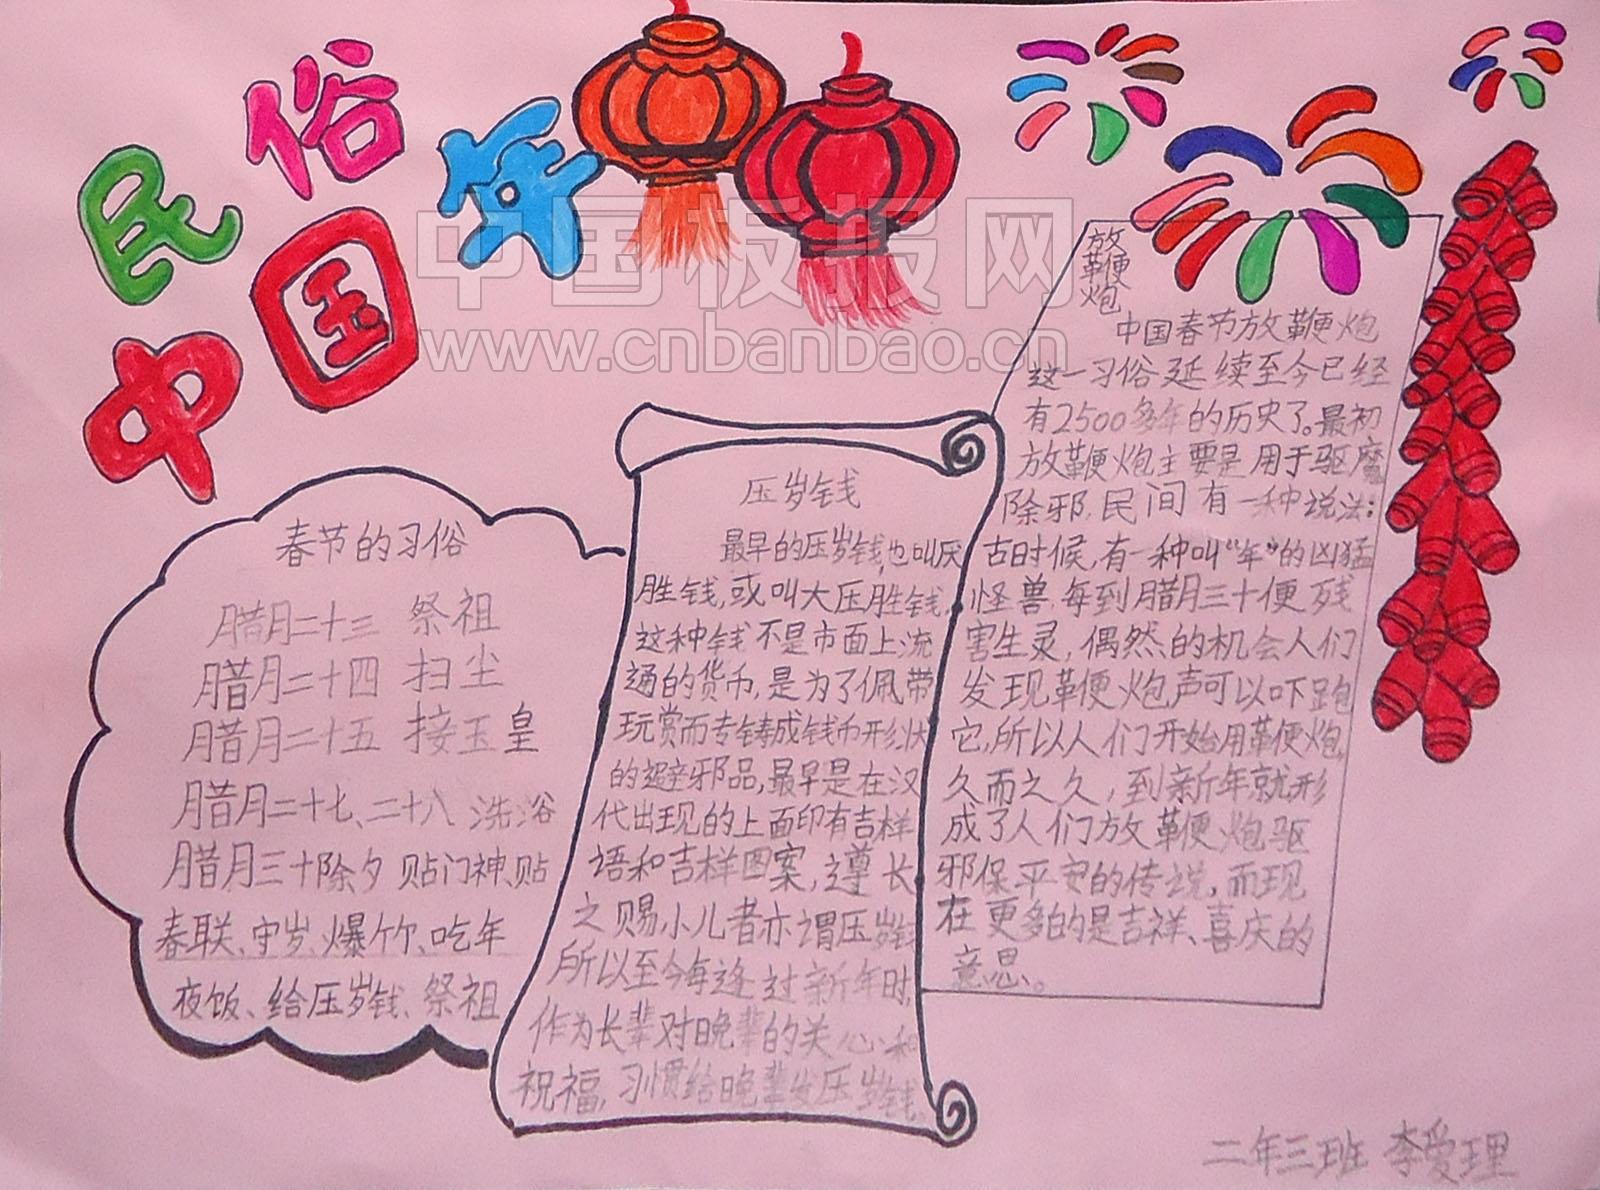 民俗
中国年
中国板报网
www.cnbanbao.cn
春节的习俗
腊月二十三 祭祖
腊月二十四 扫尘
腊月二十五 接玉皇
腊月二十七、二十八 洗浴
腊月三十除夕 贴门神、贴
春联、守岁、爆竹、吃年
夜饭、给压岁钱、祭祖
压岁钱
最早的压岁钱,也叫厌
胜钱,或叫大压胜钱,
这种钱不是市面上流
通的货币,是为了佩带
玩赏而专铸成钱币形状
的避邪品,最早是在汉
代出现的上面印有吉样
语和吉样图案,遵长
之赐,小儿者亦谓压岁钱
所以至今每逢过新年时,
作为长辈对晚辈的关心和
祝福,习惯给晚辈发压岁钱。
放
鞭
炮
中国春节放鞭炮
这一习俗延续至今已经
有2500多年的历史了。最初
放鞭炮主要是用于驱魔
除邪,民间有一种说法:
古时候,有一种叫“年”的凶猛
怪兽,每到腊月三十便残
害生灵,偶然的机会人们
发现鞭炮声可以吓跑
它,所以人们开始用鞭炮,
久而之久,到新年就形
成了人们放鞭炮驱
邪保平安的传说,而现
在更多的是吉祥、喜庆的
意思。
二年三班 李爱理